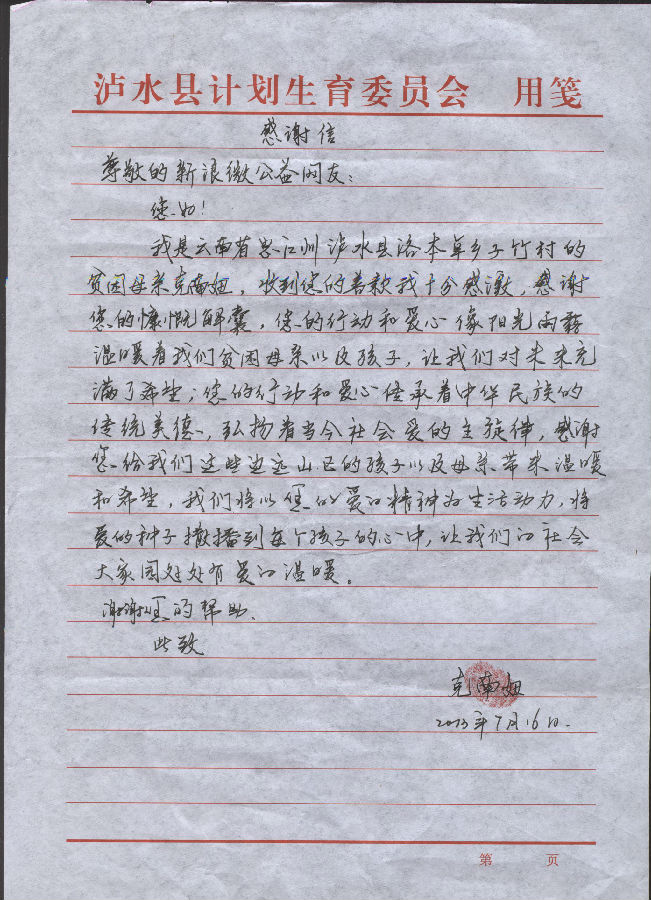 泸水县计划生育委员会 用笺
感谢信
尊敬的新浪微公益网友：
您好！
我是云南省怒江州泸水县洛本卓乡子竹村的
贫困母亲克南妞，收到您的善款我十分感激，感谢
您的慷慨解囊，您的行动和爱心像阳光雨露
温暖着我们贫困母亲以及孩子，让我们对未来充
满了希望；您的行动和爱心传承着中华民族的
传统美德，弘扬着当今社会爱的主旋律，感谢
您给我们这些边远山区的孩子以及母亲带来温暖
和希望，我们将以您的爱的精神为生活动力，将
爱的种子撒播到每个孩子的心中，让我们的社会
大家园处处有爱的温暖。
谢谢您的帮助.
此致
克南妞
2013年7月16日.
第 页